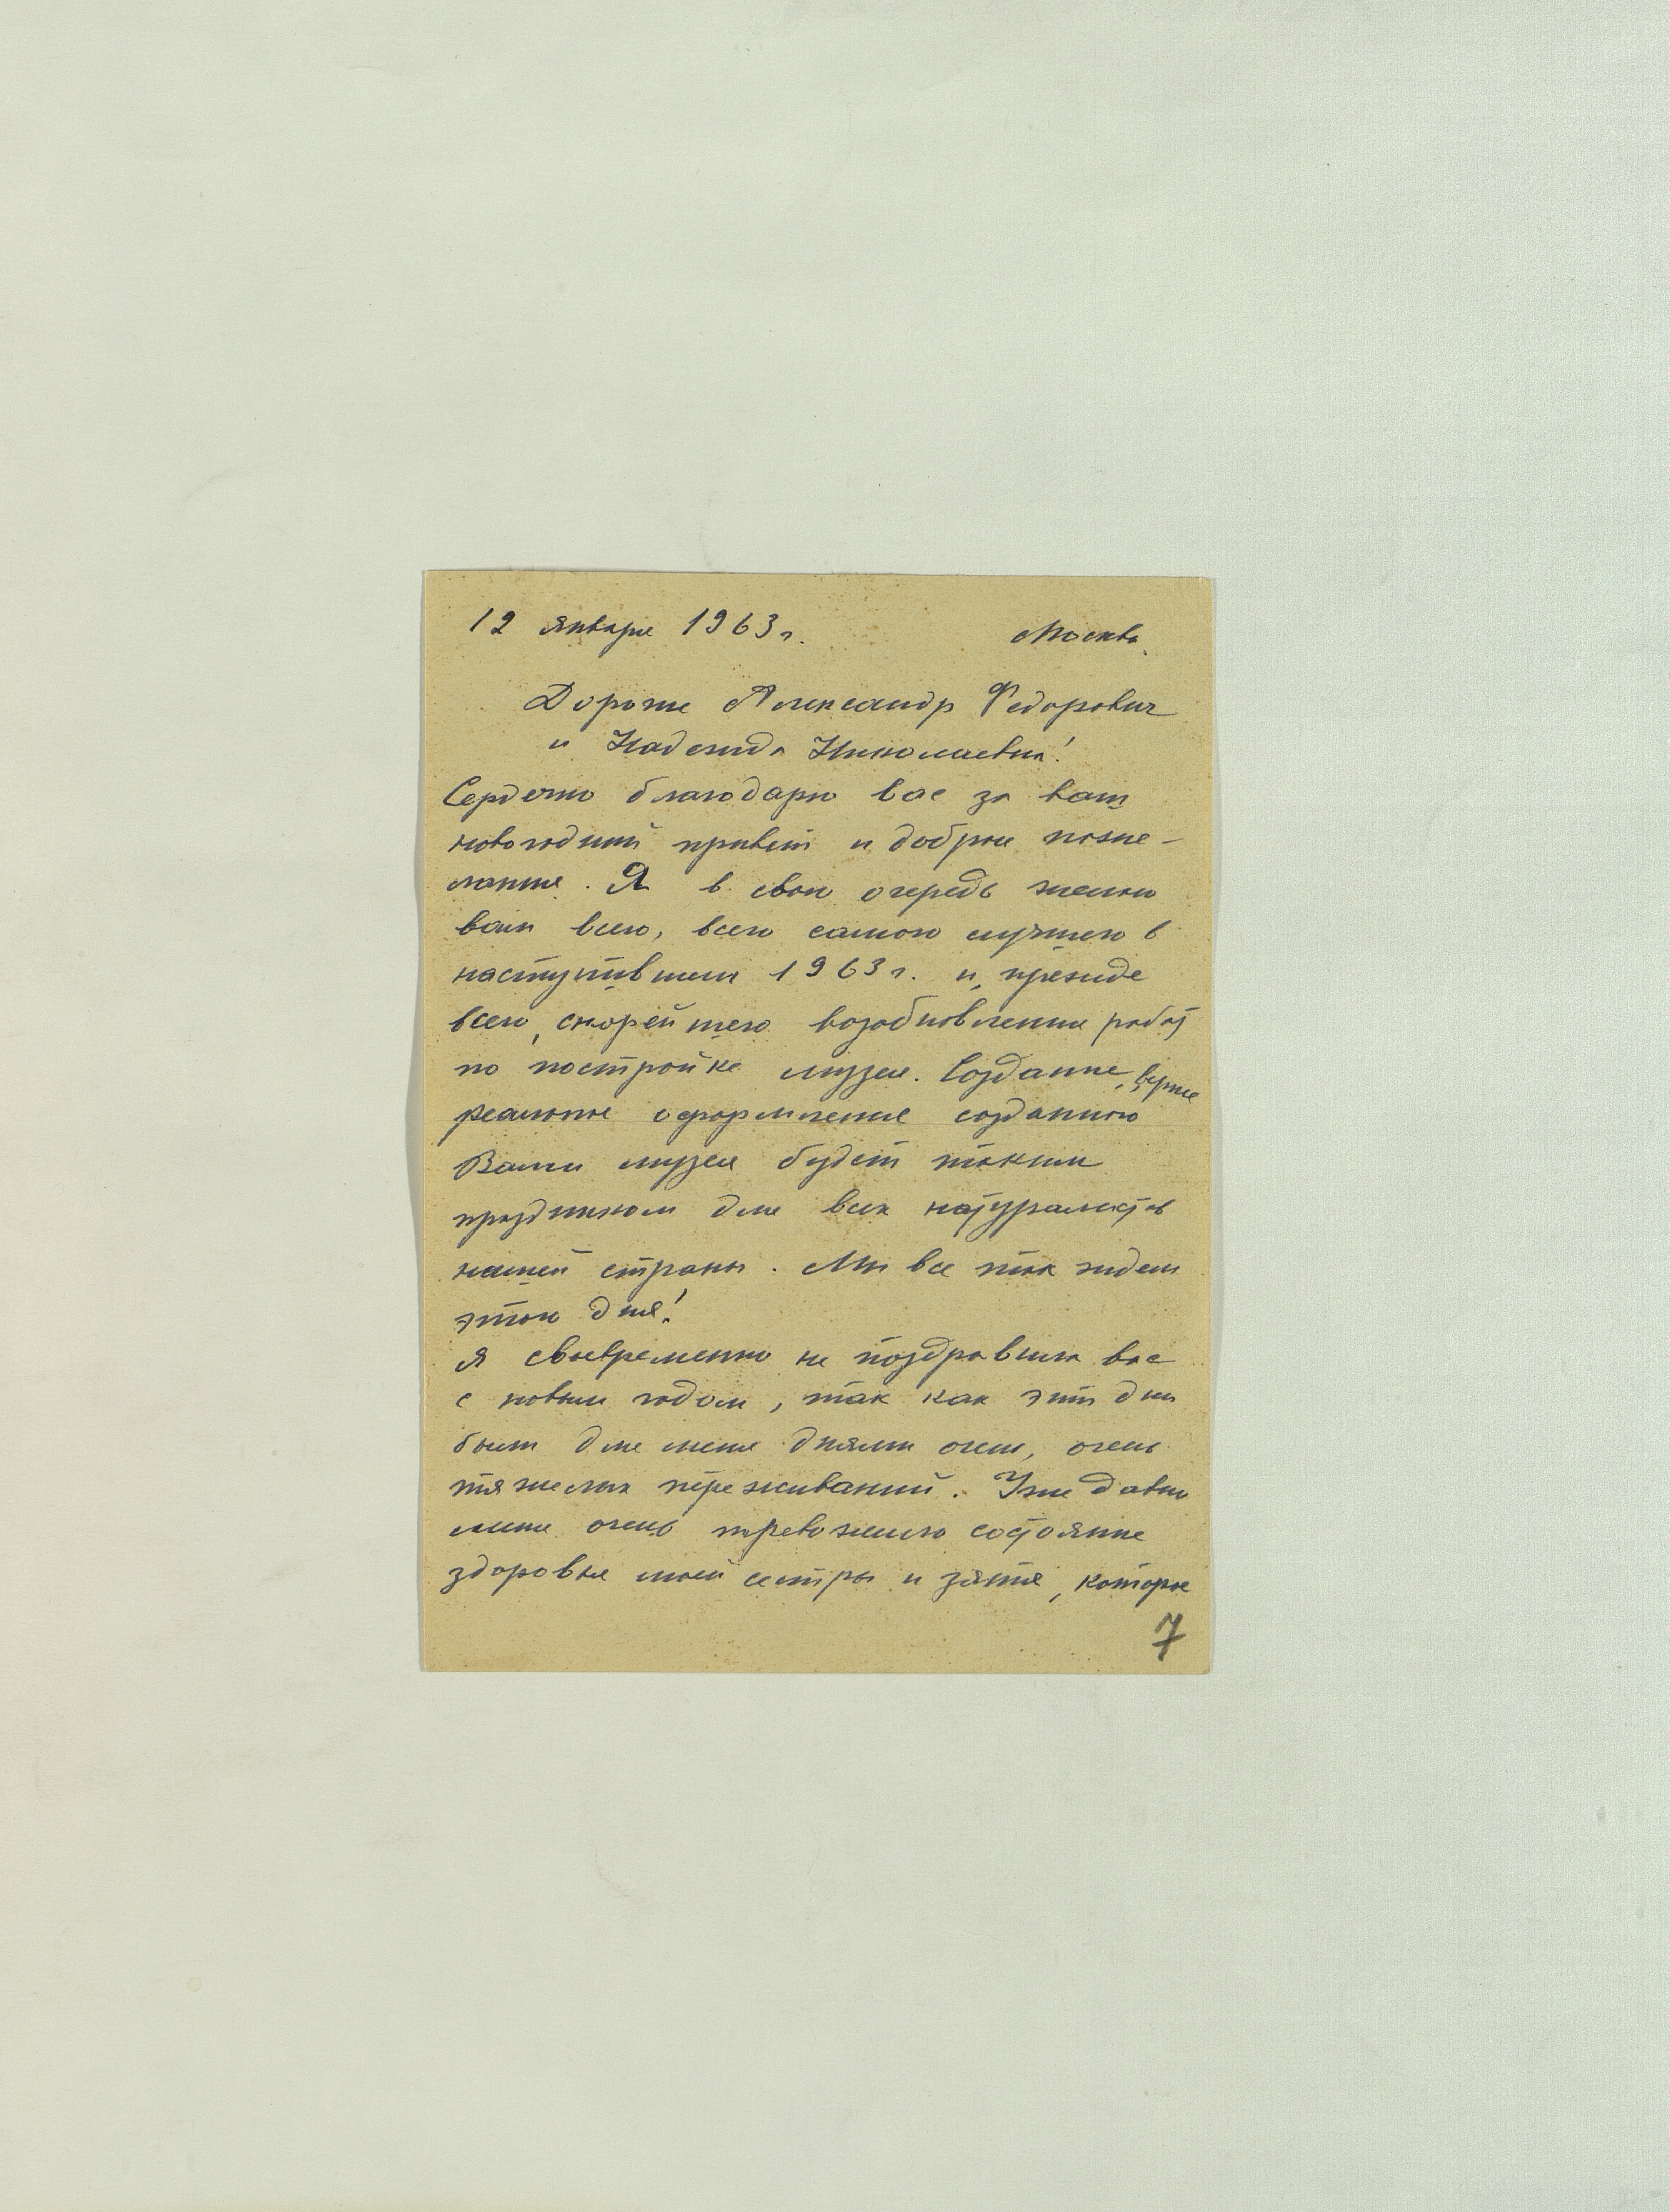 12 января 1963 г. Москва.
Дорогие Александр Федорович
и Надежда Николаевна!
Сердечно благодарю вас за ваш
новогодний привет и добрые поже-
лания. Я в свою очередь желаю
вам всего, всего самого лучшего в
наступившем 1963 г. и, прежде
всего, скорейшего возобновления работ
по постройке музея. Создание, вернее
реальное оформление созданного
Вами музея будет таким
праздником для всех натуралистов
нашей страны. Мы все так ждем
этого дня!
Я своевременно не поздравила вас
с новым годом, так как эти дни
были для меня днями очень, очень
тяжелых переживаний. Уже давно
меня очень тревожило состояние
здоровья моей сестры и зятя, которые
7